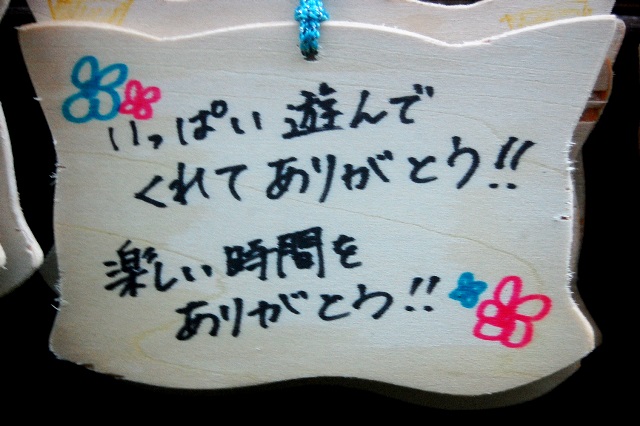 いっぱい遊んで
くれてありがとう!!
楽しい時間を
ありがとう!!